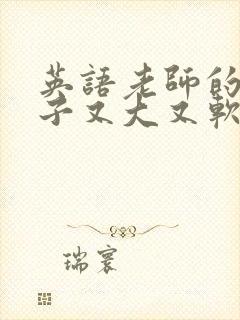 英語老師的
子又大又軟
瑞寰